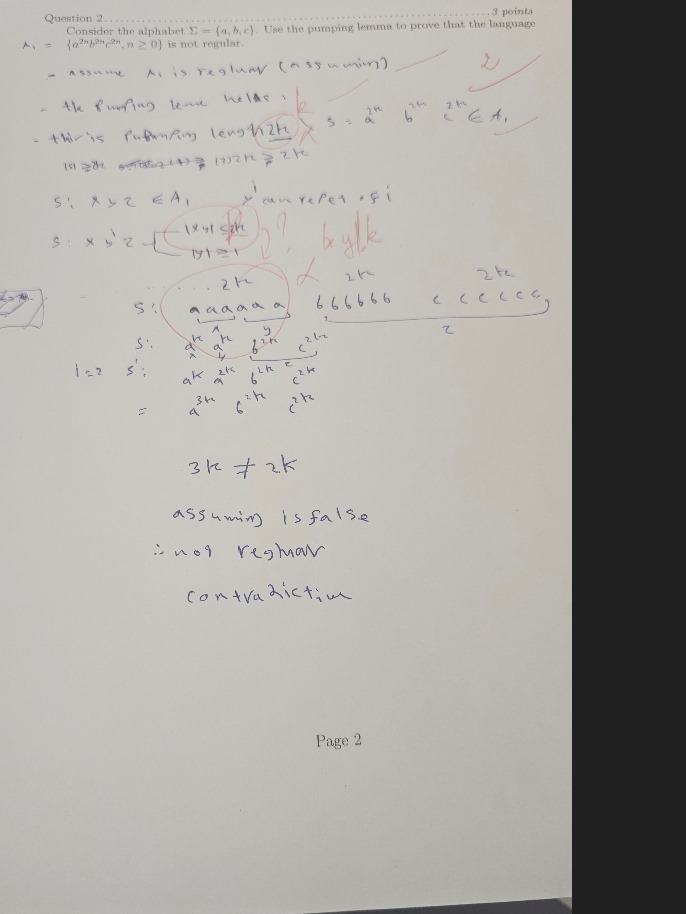 Question 2. . . . . . . . . . . . . . . . . . . . . . . . . . . . . . . . . . . . . . . . . . . . . . . . . . . . . . . . . . . . . 3 points
Consider the alphabet Σ = {a, b, c}. Use the pumping lemma to prove that the language
A₁ = {a²ⁿb²ⁿc²ⁿ, n ≥ 0} is not regular.
- assume A₁ is regluar (assuming)
2
- the Pumping helds.
k
- this is length 2k s = a²ᵏ b²ᵏ c²ᵏ ∈ A₁
2k ≥ 2k
s: x y z ∈ A₁ yⁱ can repet of i
s: x yⁱ z |xy| ≤ 2k
|y| ≥ 1
2k 2k 2k
s: a a a a a a b b b b b b c c c c c c
x y z
s: aᵏ aᵏ b²ᵏ c²ᵏ
x y z
i=2 s': aᵏ a²ᵏ b²ᵏ c²ᵏ
= a³ᵏ b²ᵏ c²ᵏ
3k ≠ 2k
assuming is false
∴ not regluar
contradiction
Page 2